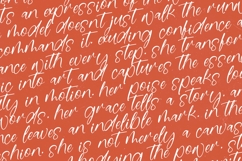 is an expression of the
model doesn't just walk the runw
commands it, exuding confidence
ance with every step, she transforms
ic into art and captures the essen
ity in motion. her poise speaks lo
words, her grace tells a story, an
ance leaves an indelible mark. in th
shion, she is not merely a canvas
embodying the power